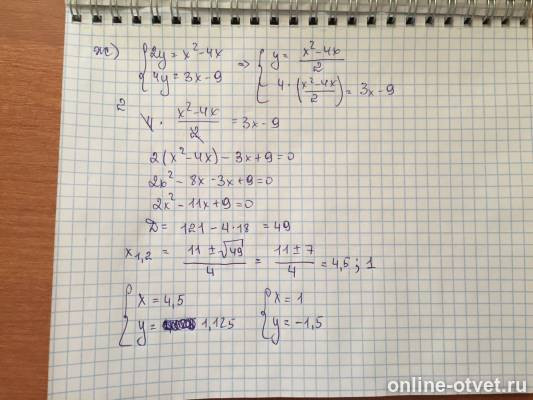 ж) { 2y = x² - 4x
4y = 3x - 9 => { y = (x² - 4x)/2
4 · ((x² - 4x)/2) = 3x - 9
2
4 · (x² - 4x)/2 = 3x - 9
2(x² - 4x) - 3x + 9 = 0
2x² - 8x - 3x + 9 = 0
2x² - 11x + 9 = 0
D = 121 - 4·18 = 49
x1,2 = (11 ± √49)/4 = (11 ± 7)/4 = 4,5 ; 1
{ x = 4,5
y = 1,125
{ x = 1
y = -1,5
online-otvet.ru